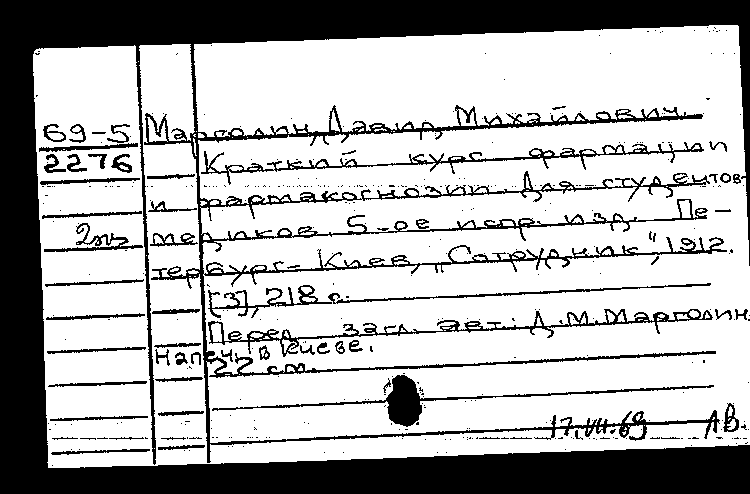 69-5 Марголин, Давид Михайлович.
2276 Краткий курс фармации
и фармакогнозии. Для студентов-
2экз медиков. 5-ое испр. изд. Пе-
тербург- Киев, „Сотрудник", 1912.
[3], 218 с.
Перед загл. авт.: Д.М.Марголин.
Напеч. в Киеве.
22 см.
17.VII.69 АВ.